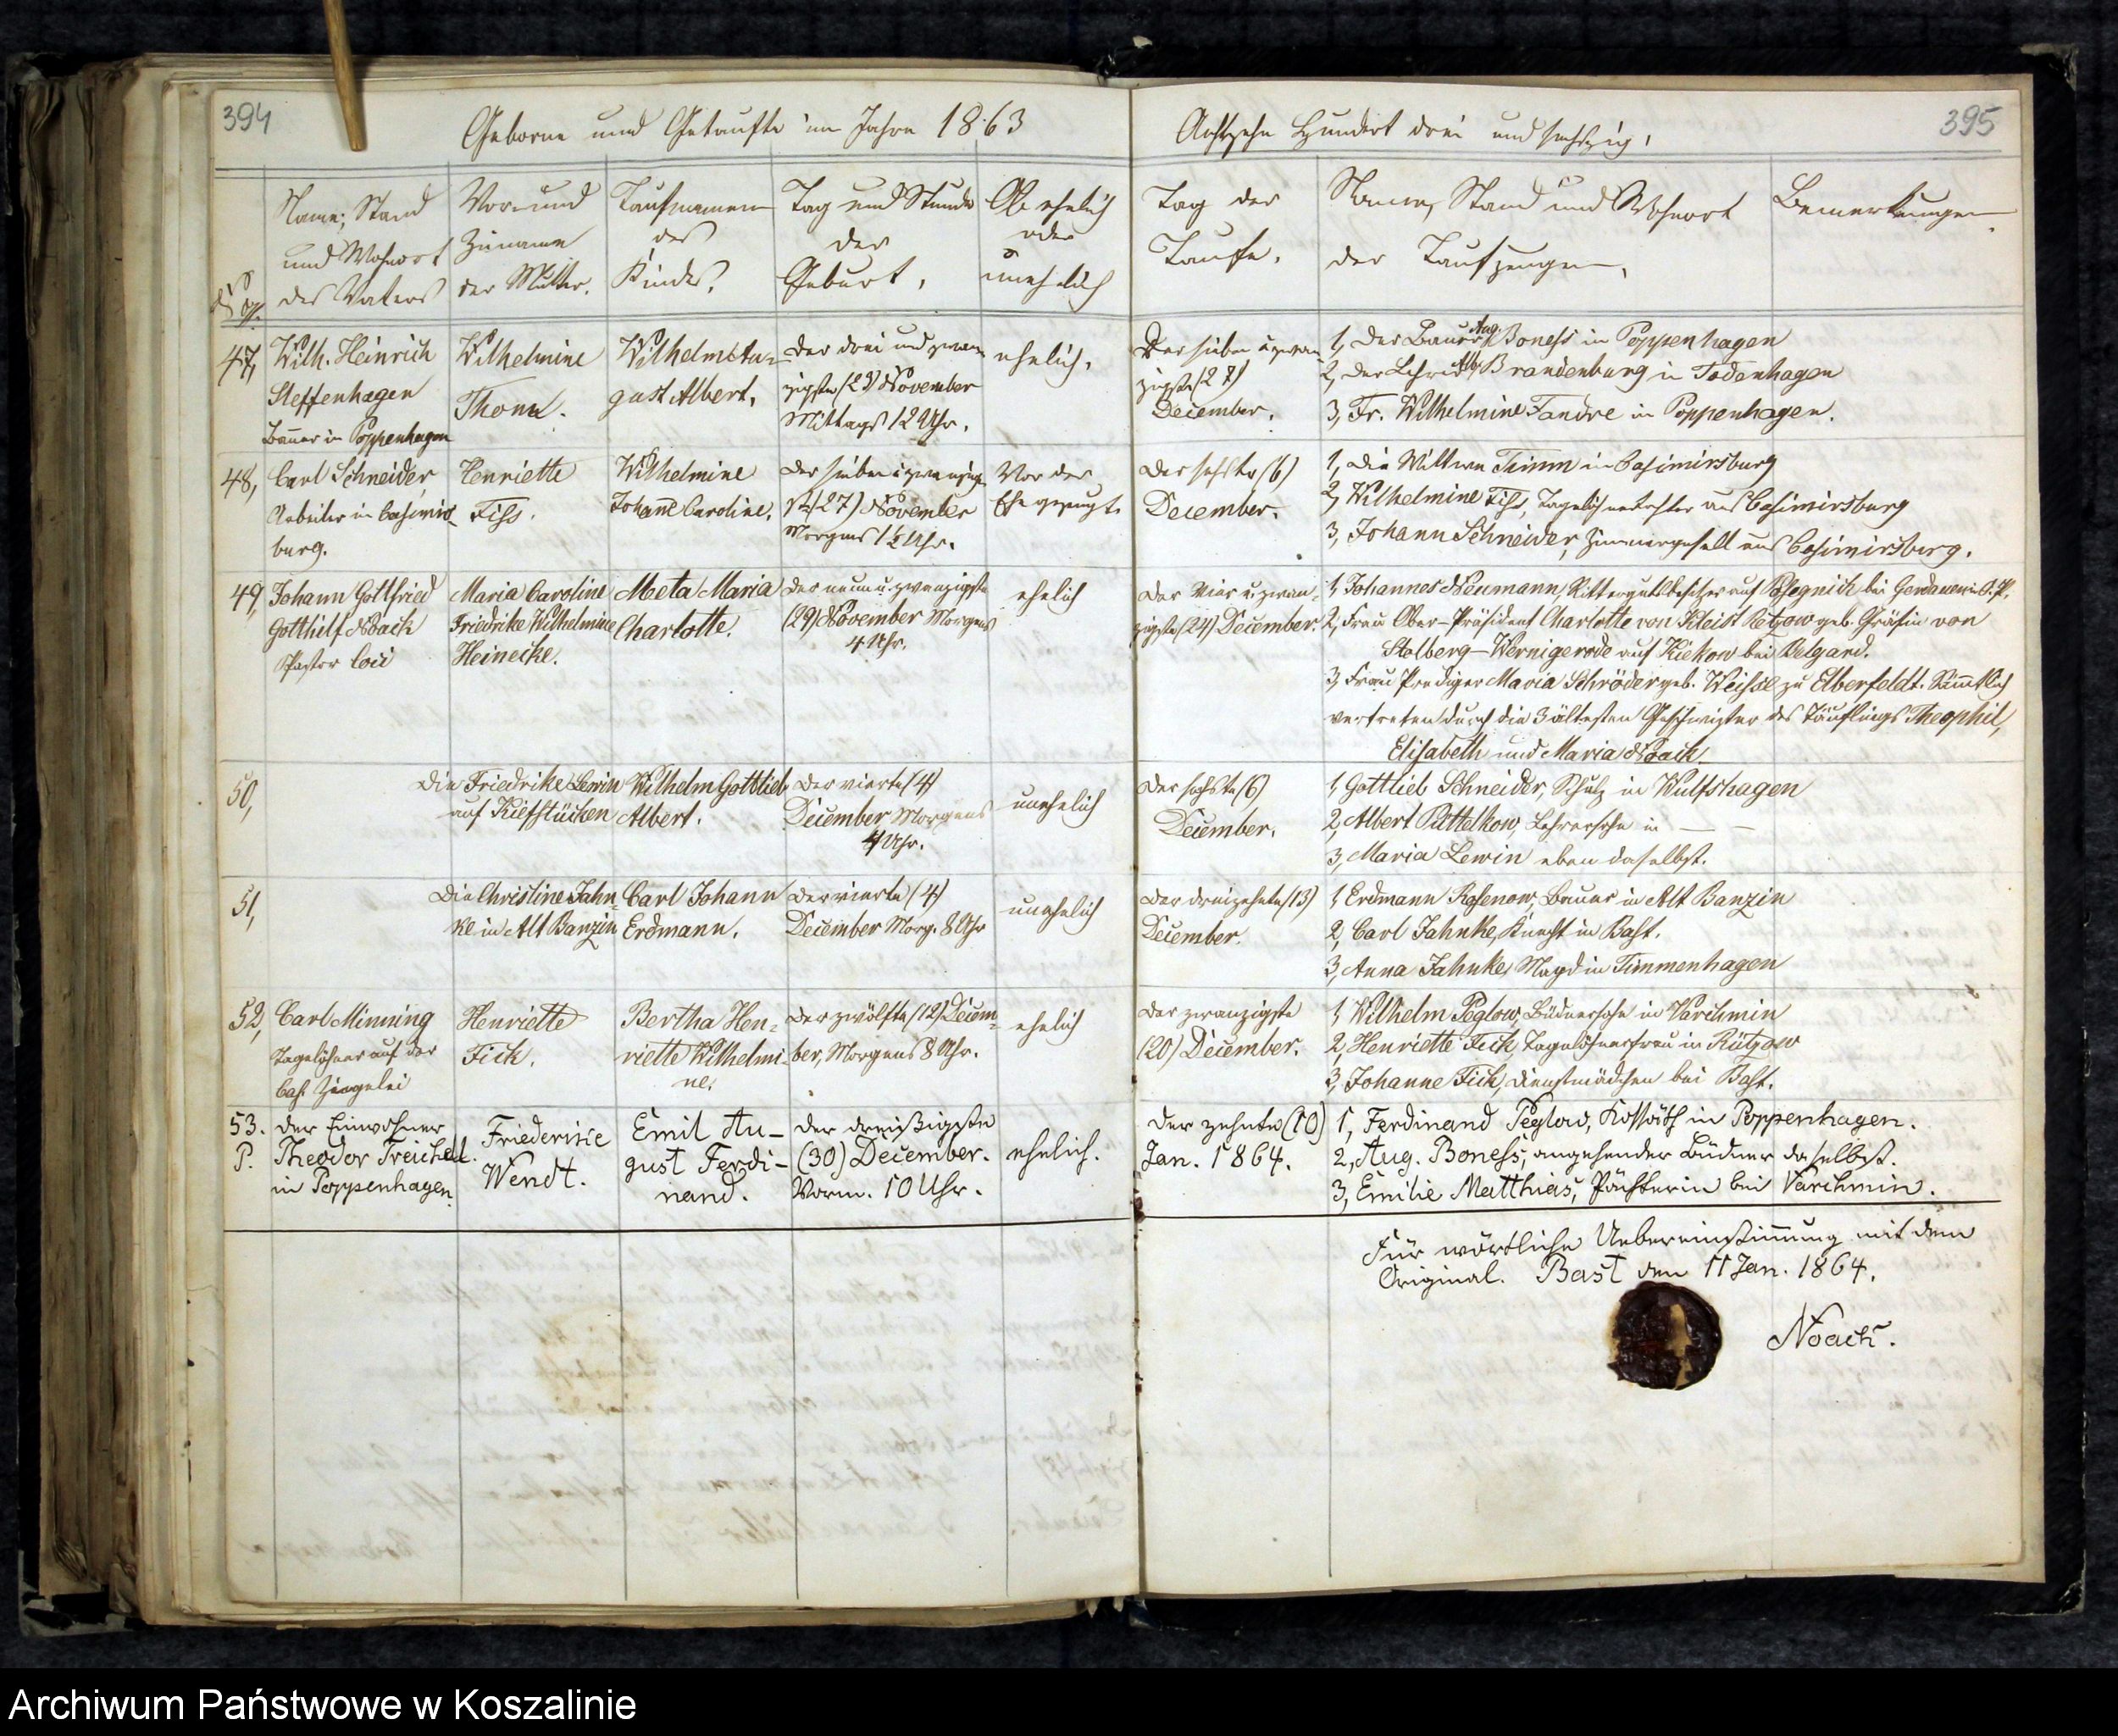 394
Geborne und Getaufte im Jahre 1863
Name, Stand
und Wohnort
des Vaters
Vor- und
Zuname
der Mutter.
Taufnamen
des
Kindes.
Tag und Stunde
der
Geburt.
Ob ehelich
oder
unehelich
47,
Wilh. Heinrich
Steffenhagen
Bauer in Poppenhagen
Wilhelmine
Thom.
Wilhelm Au-
gust Albert.
Der drei und zwan-
zigste (23) November
Mittags 12 Uhr.
ehelich.
48,
Carl Schneider
Arbeiter in Casimirs-
burg.
Henriette
Fiss.
Wilhelmine
Johanne Caroline.
Der sieben u zwanzig-
ste (27) November
Morgens Uhr.
Vor der
Ehe gezeugt.
49,
Johann Gottfried
Gotthilf Noack
Pastor loci
Maria Caroline
Friedrike Wilhelmine
Heinecke.
Meta Maria
Charlotte.
Der neun u. zwanzigste
(29) November Morgens
4 Uhr.
ehelich
50,
Die Friedrike Lewin
auf Kiefstücken
Wilhelm Gottlieb
Albert.
Der vierte (4)
December Morgens
4 Uhr.
unehelich
51,
Die Christine Jahn-
ke in Alt Banzin
Carl Johann
Erdmann.
Der vierte (4)
December Morg. 8 Uhr
unehelich
52,
Carl Minning
Tagelöhner auf der
Cas. Ziegelei
Henriette
Fick.
Bertha Hen-
riette Wilhelmi-
ne.
Der zwölfte (12) Decem-
ber, Morgens 8 Uhr.
ehelich
53.
P.
Der Einwohner
Theodor Treichel
in Poppenhagen.
Friederike
Wendt.
Emil Au-
gust Ferdi-
nand.
Der dreißigste
(30) December.
Vorm. 10 Uhr.
ehelich.
395
Achtzehn Hundert drei und sechszig.
Tag der
Taufe.
Namen, Stand und Wohnort
der Taufzeugen.
Bemerkungen
Der sieben u zwan-
zigste (27)
December.
1, Der Bauer Aug. Boness in Poppenhagen
2, Der Lehrer Alb. Brandenburg in Todenhagen
3, Fr. Wilhelmine Tandre in Poppenhagen.
Der sechste (6)
December.
1, Die Wittwe Timm in Casimirsburg
2, Wilhelmine Fiss, Tagelöhnertochter aus Casimirsburg
3, Johann Schneider, Zimmergesell aus Casimirsburg.
Der vier u. zwan-
zigste (24) December.
1, Johannes Neumann, Rittergutsbesitzer auf Posegnick bei Gerdauen in O. P.
2, Frau Ober-Präsident Charlotte von Kleist Retzow geb. Gräfin von
Stolberg-Wernigerode auf Kiekow bei Belgard.
3, Frau Prediger Maria Schröder geb. Weisse zu Elberfeldt. Sämmtlich
vertreten durch die 3 ältesten Geschwister des Täuflings Theophil,
Elisabeth und Maria Noack.
Der sechste (6)
December.
1, Gottlieb Schneider, Schulz in Wulfshagen
2, Albert Puttelkow, Lehrersohn in — —
3, Maria Lewin ebendaselbst.
Der dreizehnte (13)
December.
1, Erdmann Rosenow, Bauer in Alt Banzin
2, Carl Jahnke, Knecht in Bast.
3, Anna Jahnke, Magd in Timmenhagen
Der zwanzigste
(20) December.
1, Wilhelm Peglow, Büdnersohn in Varchmin
2, Henriette Fick, Tagelöhnerfrau in Rützow
3, Johanne Fick, Dienstmädchen bei Bast.
Der zehnte (10)
Jan. 1864.
1, Ferdinand Peglow, Kossäth in Poppenhagen.
2, Aug. Boness, angehender Büdner daselbst.
3, Emilie Matthias, Pächterin bei Varchmin.
Für wörtliche Uebereinstimmung mit dem
Original. Bast den 11 Jan. 1864.
Noack.
Archiwum Państwowe w Koszalinie